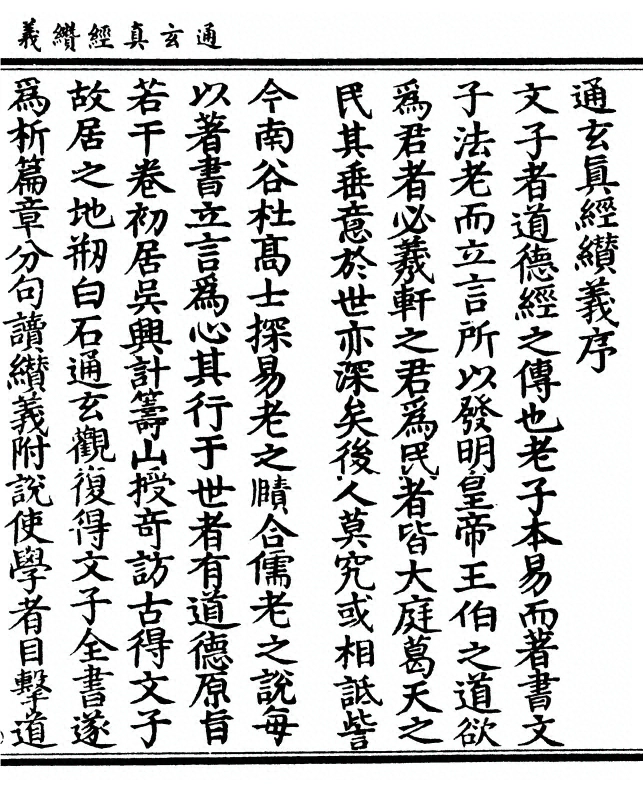 通玄真經纘義
通玄真經纘義序
文子者道德經之傳也老子本易而著書文
子法老而立言所以發明皇帝王伯之道欲
爲君者必羲軒之君爲民者皆大庭葛天之
民其垂意於世亦深矣後人莫究或相詆訾
今南谷杜高士探易老之賾合儒老之說每
以著書立言爲心其行于世者有道德原旨
若干卷初居吳興計籌山授奇訪古得文子
故居之地剏白石通玄觀復得文子全書遂
爲析篇章分句讀纘義附說使學者目擊道